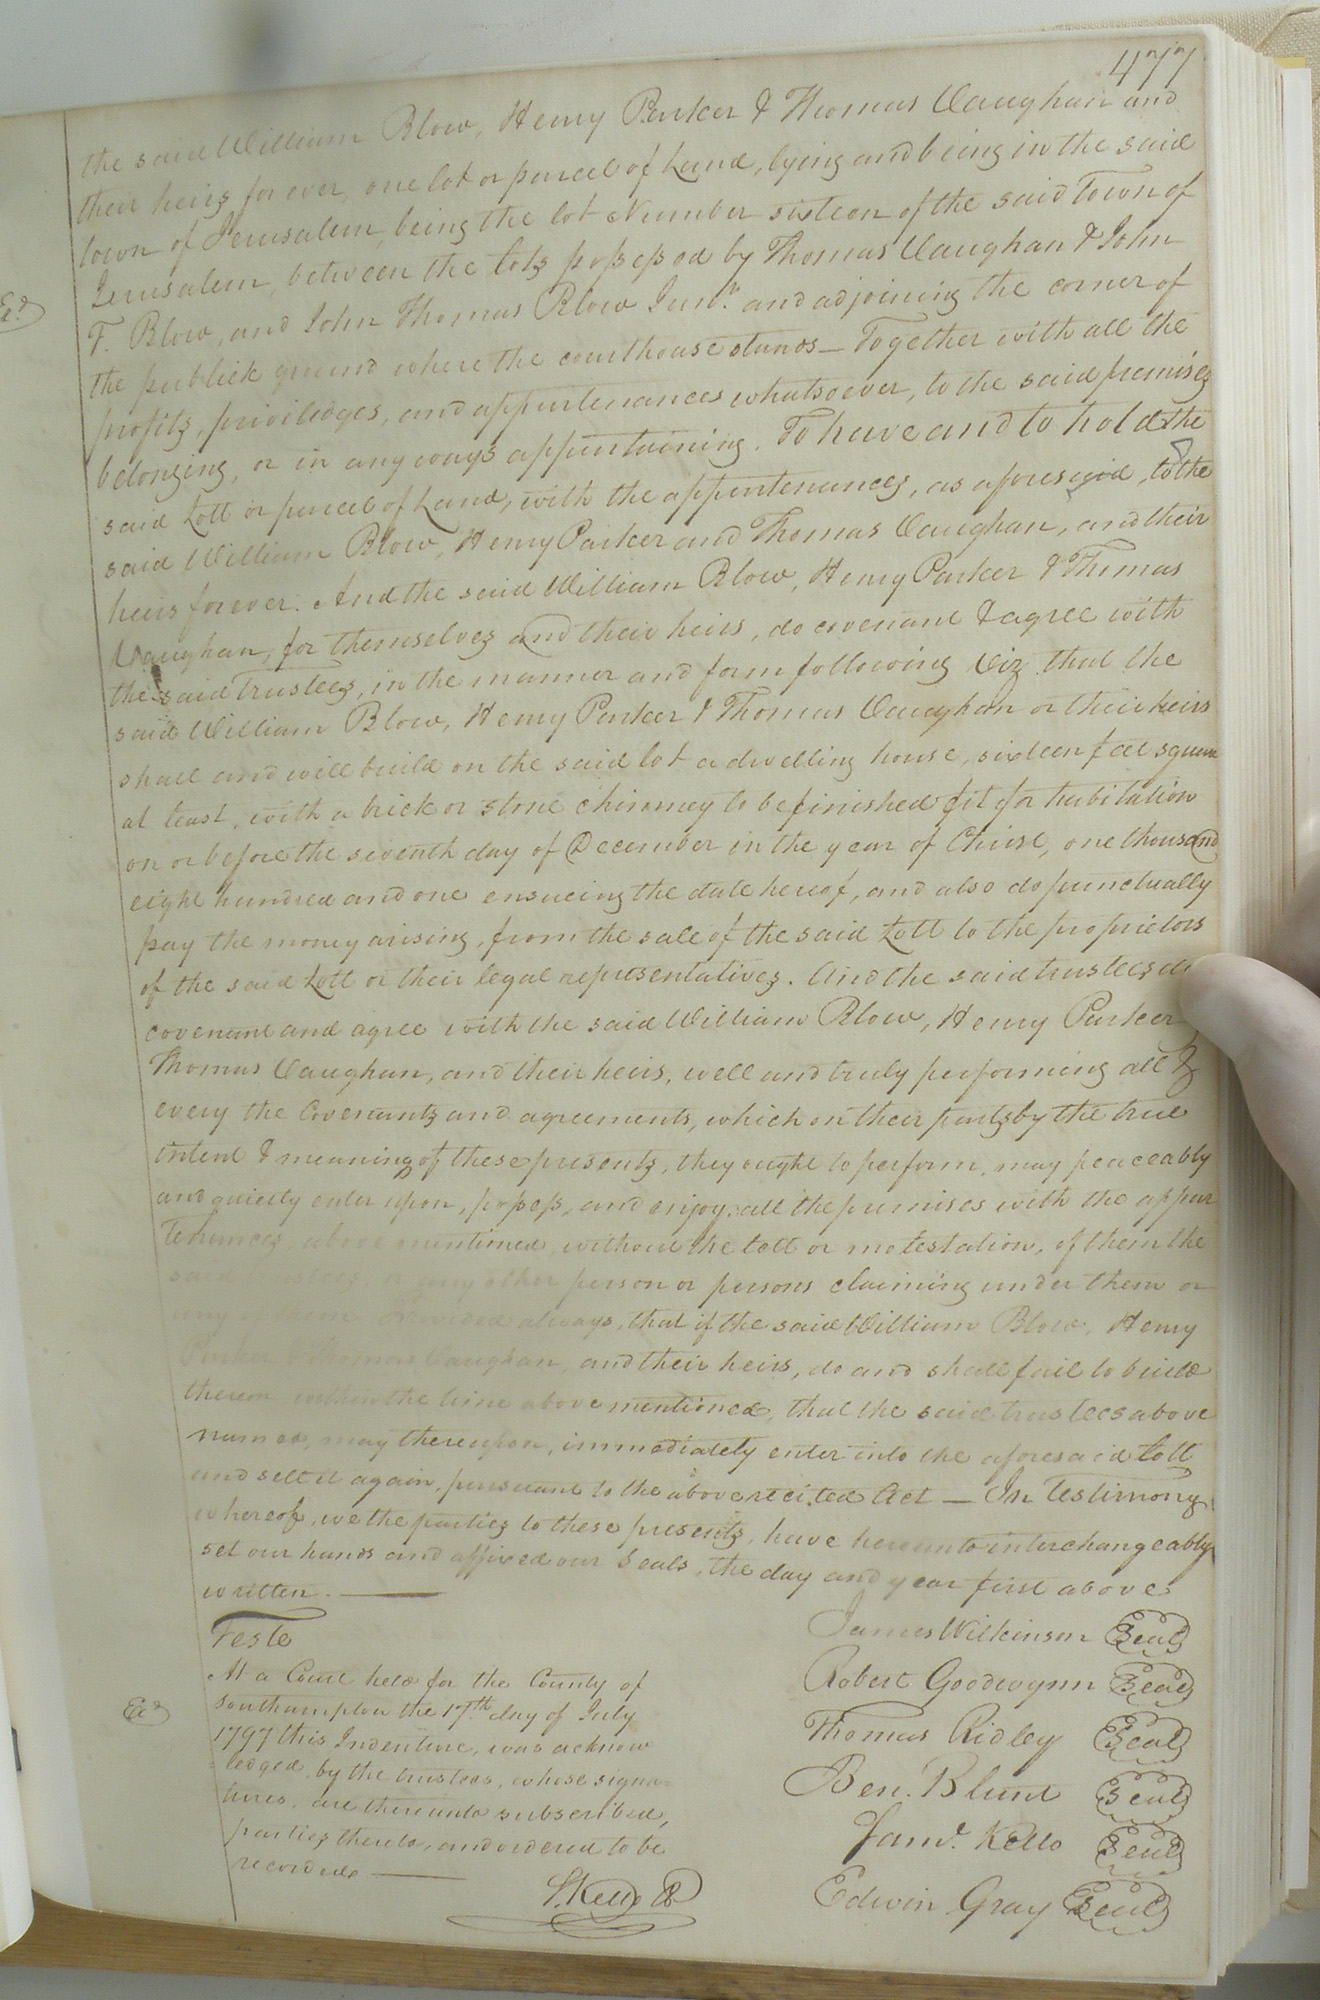 477
the said William Blow, Henry Parker & Thomas Vaughan and
their heirs for ever, one lot or parcel of Land, lying and being in the said
town of Jerusalem, being the lot Number sixteen of the said Town of
Jerusalem, between the lots possessed by Thomas Vaughan & John
T. Blow, and John Thomas Blow Junr. and adjoining the corner of
the publick ground where the courthouse stands — Together with all the
profits, priviledges, and appurtenances whatsoever, to the said premises
belonging, or in any ways appertaining. To have and to hold the
said Lott or parcel of Land, with the appurtenances, as aforesaid, to the
said William Blow, Henry Parker and Thomas Vaughan, and their
heirs forever. And the said William Blow, Henry Parker & Thomas
Vaughan, for themselves and their heirs, do covenant & agree with
the said Trustees, in the manner and form following Viz. that the
said William Blow, Henry Parker & Thomas Vaughan or their heirs
shall and will build on the said lot a dwelling house, sixteen feet square
at least, with a brick or stone chimney to be finished fit for habitation
on or before the seventh day of December in the year of Christ, one thousand
eight hundred and one ensueing the date hereof, and also do punctually
pay the money arising, from the sale of the said Lott to the proprietors
of the said Lott or their legal representatives. And the said trustees do
covenant and agree with the said William Blow, Henry Parker
Thomas Vaughan, and their heirs, well and truly performing all &
every the Covenants and agreements, which on their parts by the true
intent & meaning of these presents, they ought to perform, may peaceably
and quietly enter upon, possess, and enjoy, all the premises with the appur
tenances above mentioned, without the lett or molestation, of them the
said trustees, or any other person or persons claiming under them or
any of them Provided always, that if the said William Blow, Henry
Parker & Thomas Vaughan, and their heirs, do and shall fail to build
thereon within the time above mentioned, that the said trustees above
named, may thereupon, immediately enter into the aforesaid Lott
and sell it again, pursuant to the above recited Act — In Testimony
whereof, we the parties to these presents, have hereunto interchangeably
set our hands and affixed our Seals, the day and year first above
written. —
Teste
James Wilkinson Seal
Robert Goodwynn Seal
Thomas Ridley Seal
Ben. Blunt Seal
Saml. Kello Seal
Edwin Gray Seal
At a Court held for the County of
Southampton the 17th. day of July
1797 this Indenture, was acknow
ledged by the trustees, whose signa-
tures, are thereunto subscribed,
parties thereto, and ordered to be
recorded —
Exd
S. Kello